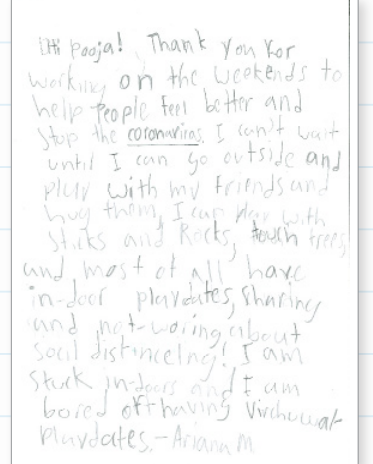 Hi Pooja! Thank you for
working on the weekends to
help People feel better and
stop the coronaviras. I can't wait
until I can go outside and
play with my friends and
hug them, I can play with
Sticks and Rocks, touch trees
and most of all have
in-door playdates, Sharing
and not-woring about
socil distinceing! I am
stuck in-doors and I am
bored off having Virchuwal
Playdates.-Ariana M